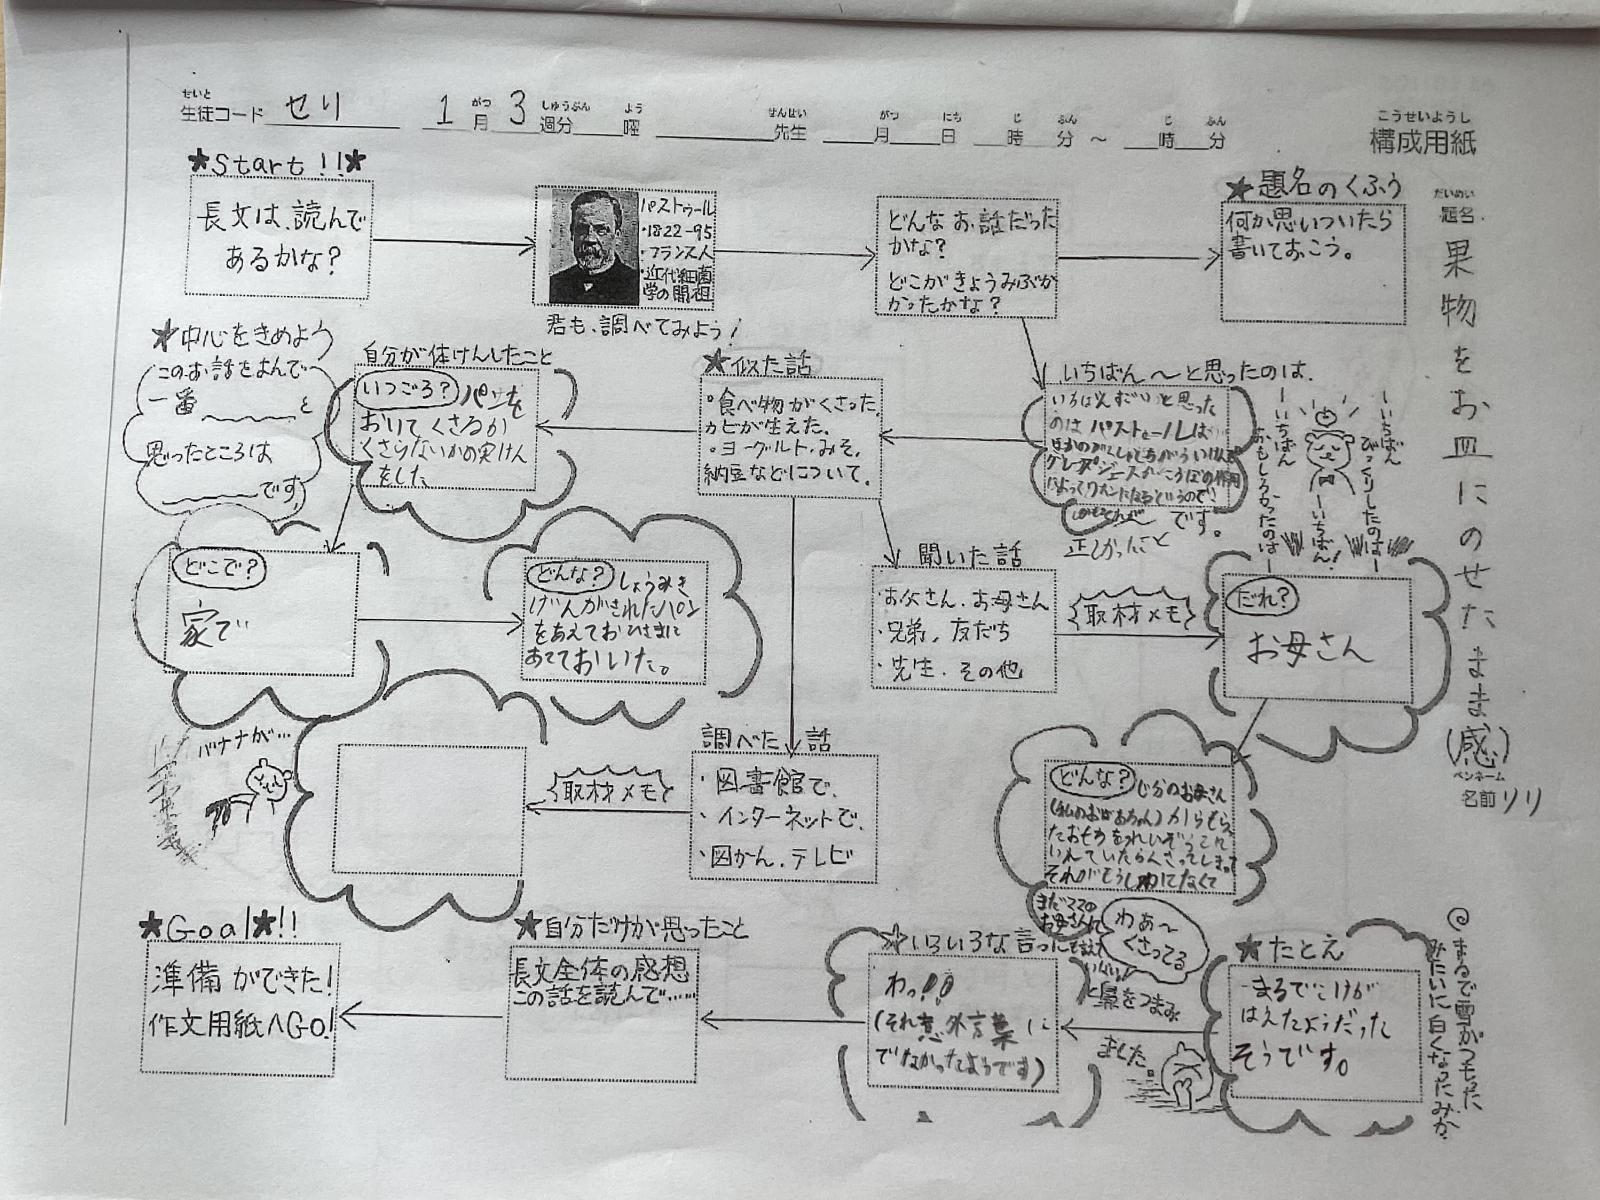 せいと
生徒コード せり 1 がつ 月 3 しゅうぶん 週分 よう 曜 せんせい 先生 がつ 月 にち 日 じ 時 ふん 分 ～ じ 時 ふん 分
こうせいようし
構成用紙
★Start!!★
長文は、読んで
あるかな？
パストゥール
・1822-95
・フランス人
・近代細菌
学の開祖
君も、調べてみよう！
どんなお話だった
かな？
どこがきょうみぶか
かったかな？
★題名のくふう
何か思いついたら
書いておこう。
だいめい
題名
果物をお皿にのせたまま(感)
ペンネーム
名前 リリ
★中心をきめよう
このお話をよんで
一番～～～～と
思ったところは
～～～～です
自分が体けんしたこと
いつごろ？ パンを
おいてくさるか
くさらないかの実けん
をした
★似た話
・食べ物がくさった、
カビが生えた。
・ヨーグルト・みそ、
納豆などについて。
いちばん～と思ったのは、
のは パストゥールは
～です。
正しかったこと
ーいちばん
びっくりしたのはー
ーいちばん！
ーいちばん
おもしろかったのはー
どこで？
家で
どんな？ しょうみき
げんがきれたパン
をあえておひさまに
あてておいた。
聞いた話
・お父さん、お母さん
・兄弟、友だち
・先生、その他
取材メモ
だれ？
お母さん
バナナが…
取材メモ
調べた話
・図書館で、
・インターネットで、
・図かん、テレビ
どんな？ じぶんのお母さん
(私のおばあちゃん)からもらっ
たおもちをれいぞうこに
いれていたらくさってしまって
それがもうしわけなくて
まだママの
お母さんに
わぁ～
くさってる
と鼻をつまみ
ました。
★Goal★!!
準備ができた！
作文用紙へGo!
★自分だけが思ったこと
長文全体の感想
この話を読んで……
☆いろいろな言
わっ!!
(それ意外言葉に
でなかったようです)
★たとえ
まるでこけが
はえたようだった
そうです。
まるで雪がつもった
みたいに白くなったみか